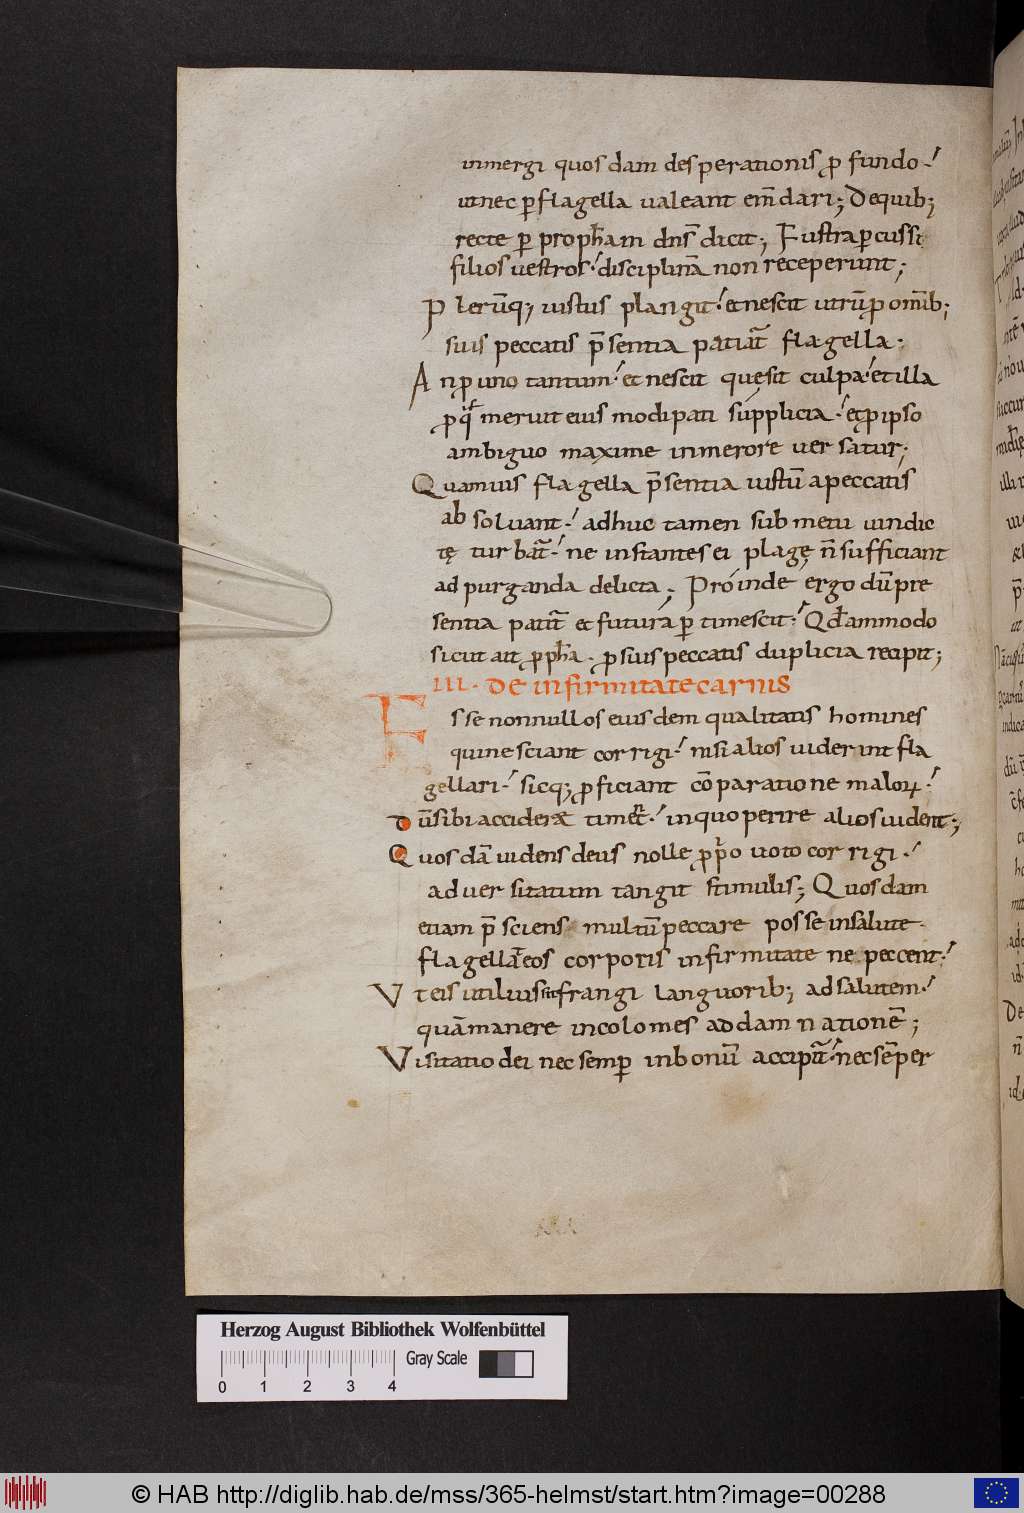 inmergi quosdam desperationis ꝓfundo ·
utnec ꝑflagella ualeant em̄dari; Dequib;
recte ꝑ propħam dn̄s dicit; Frustra ꝑcussi
filios uestros · disciplinā non receperunt;
Plerūq; iustus plangit · et nescit utrū ꝓ omīb;
suis peccatis p̄sentia patiat̄ flagella ·
An ꝓ uno tantum · et nescit quęsit culpa · et illa
ꝓ q̄ meruit eiusmodi pati supplicia · et ꝓ ipso
ambiguo maxime inmerore uersatur;
Quamuis flagella p̄sentia iustū apeccatis
absoluant · adhuc tamen sub metu uindic
tę turbat̄ · ne instantes ei plagę n̄ sufficiant
ad purganda delicta; Proinde ergo dū pre
sentia patit̄ et futura ꝑtimescit · Qđammodo
sicut ait ꝓpħa · ꝓ suis peccatis duplicia recipit;
III · De infirmitate carnis
Esse nonnullos eiusdem qualitatis homines
qui nesciant corrigi · nisi alios uiderint fla
gellari · sicq; ꝓficiant cōparatione maloꝝ ·
Dū sibi accidere timent · in quo perire alios uident;
Quosdā uidens deus nolle ꝓprio uoto corrigi ·
aduersitatum tangit stimulis; Quosdam
etiam p̄sciens multū peccare posse insalute ·
flagellat̄ eos corporis infirmitate ne peccent ·
Ut eis utilius sit frangi languorib; ad salutem ·
quā manere incolomes ad damnationē;
Visitatio dei nec semꝑ in bonū accipit̄ · nec sēper
Herzog August Bibliothek Wolfenbüttel
Gray Scale
0 1 2 3 4
© HAB http://diglib.hab.de/mss/365-helmst/start.htm?image=00288